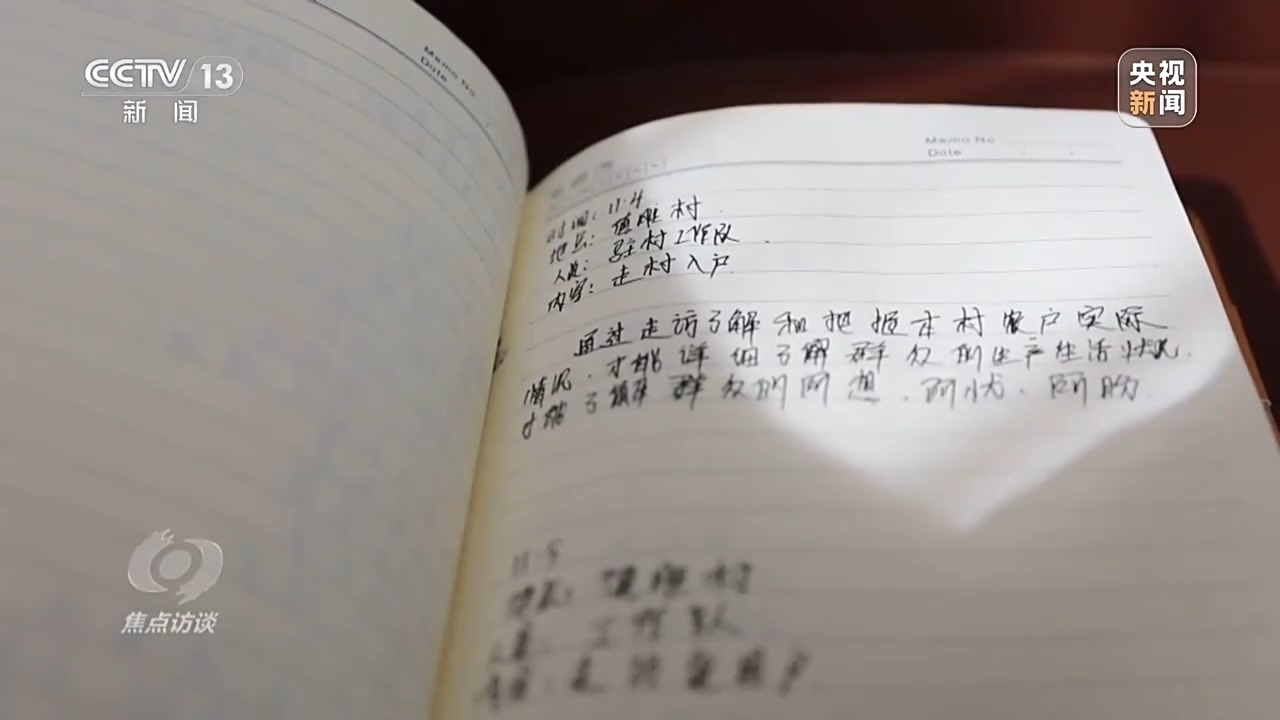 CCTV 13
新闻
央视
新闻
Memo No
Date
Memo No
Date
时间: 11·4
地点: 值班村
人员: 驻村工作队
内容: 走村入户
通过走访了解和把握本村农户实际
情况,才能详细了解群众的生产生活状况.
才能了解群众的所想、所忧、所盼
11·5
地点:
人员: 工作队
焦点访谈